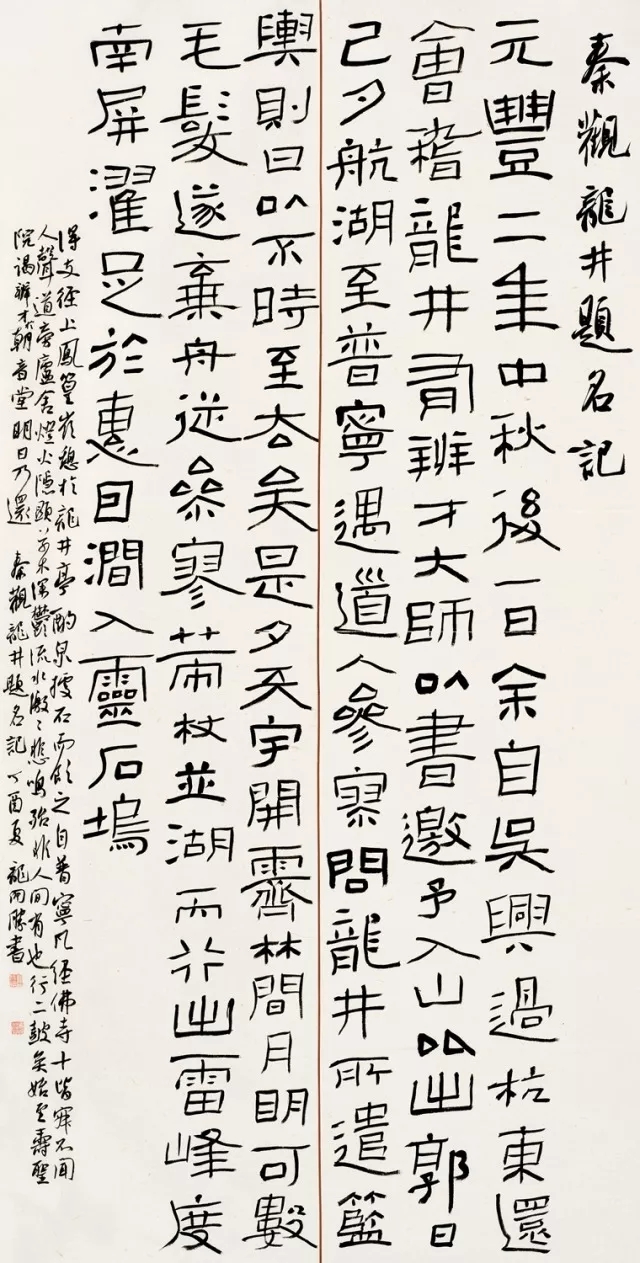 秦觀龍井題名記
元豐二年中秋後一日余自吳興過杭東還
會稽龍井有辨才大師以書邀予入山比出郭日
已夕航湖至普寧遇道人參寥問龍井所遣籃
輿則曰以不時至去矣是夕天宇開霽林間月明可數
毛髮遂棄舟從參寥策杖並湖而行出雷峰度
南屏濯足於惠因澗入靈石塢
得支徑上鳳篁嶺憩於龍井亭酌泉據石而飲之自普寧凡經佛寺十皆寂不聞
人聲道旁廬舍燈火隱顯草木深鬱流水激〻悲鳴殆非人間有也行二鼓矣始至壽聖
院謁辨才於朝音堂明日乃還 秦觀龍井題名記 丁酉夏 龍開勝書